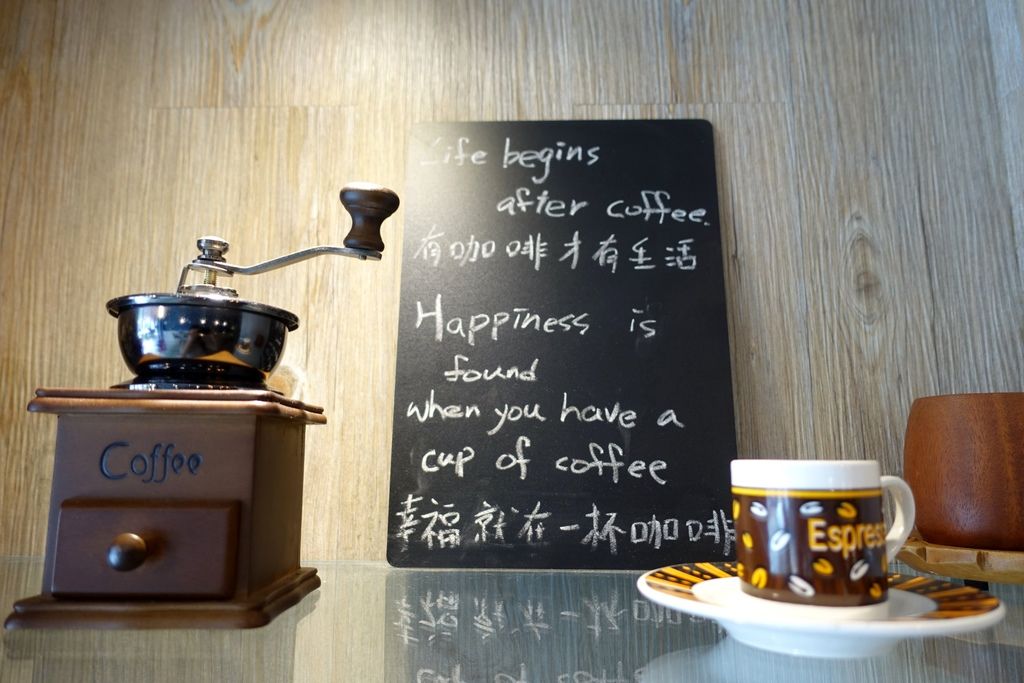 Life begins
after coffee.
有咖啡才有生活
Happiness is
found
when you have a
cup of coffee
幸福就在一杯咖啡
Coffee
Espres